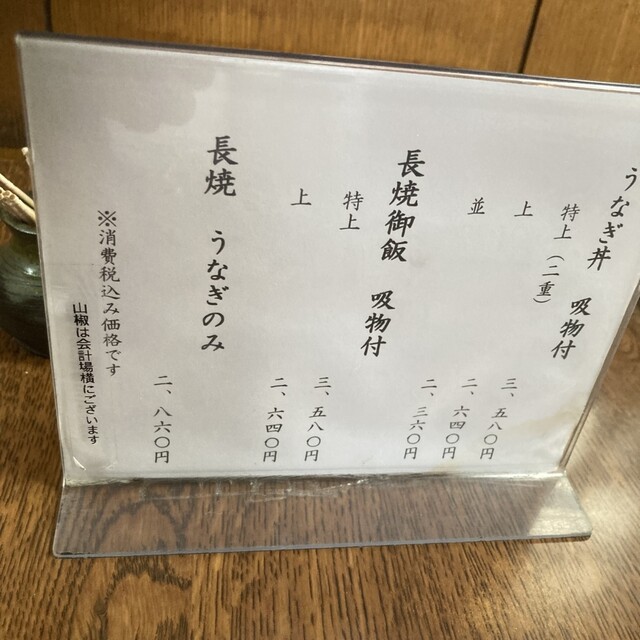 うなぎ丼 吸物付
特上（二重） 三、五八〇円
上 二、六四〇円
並 二、三六〇円
長焼御飯 吸物付
特上 三、五八〇円
上 二、六四〇円
長焼 うなぎのみ
二、八六〇円
※消費税込み価格です
山椒は会計場横にございます